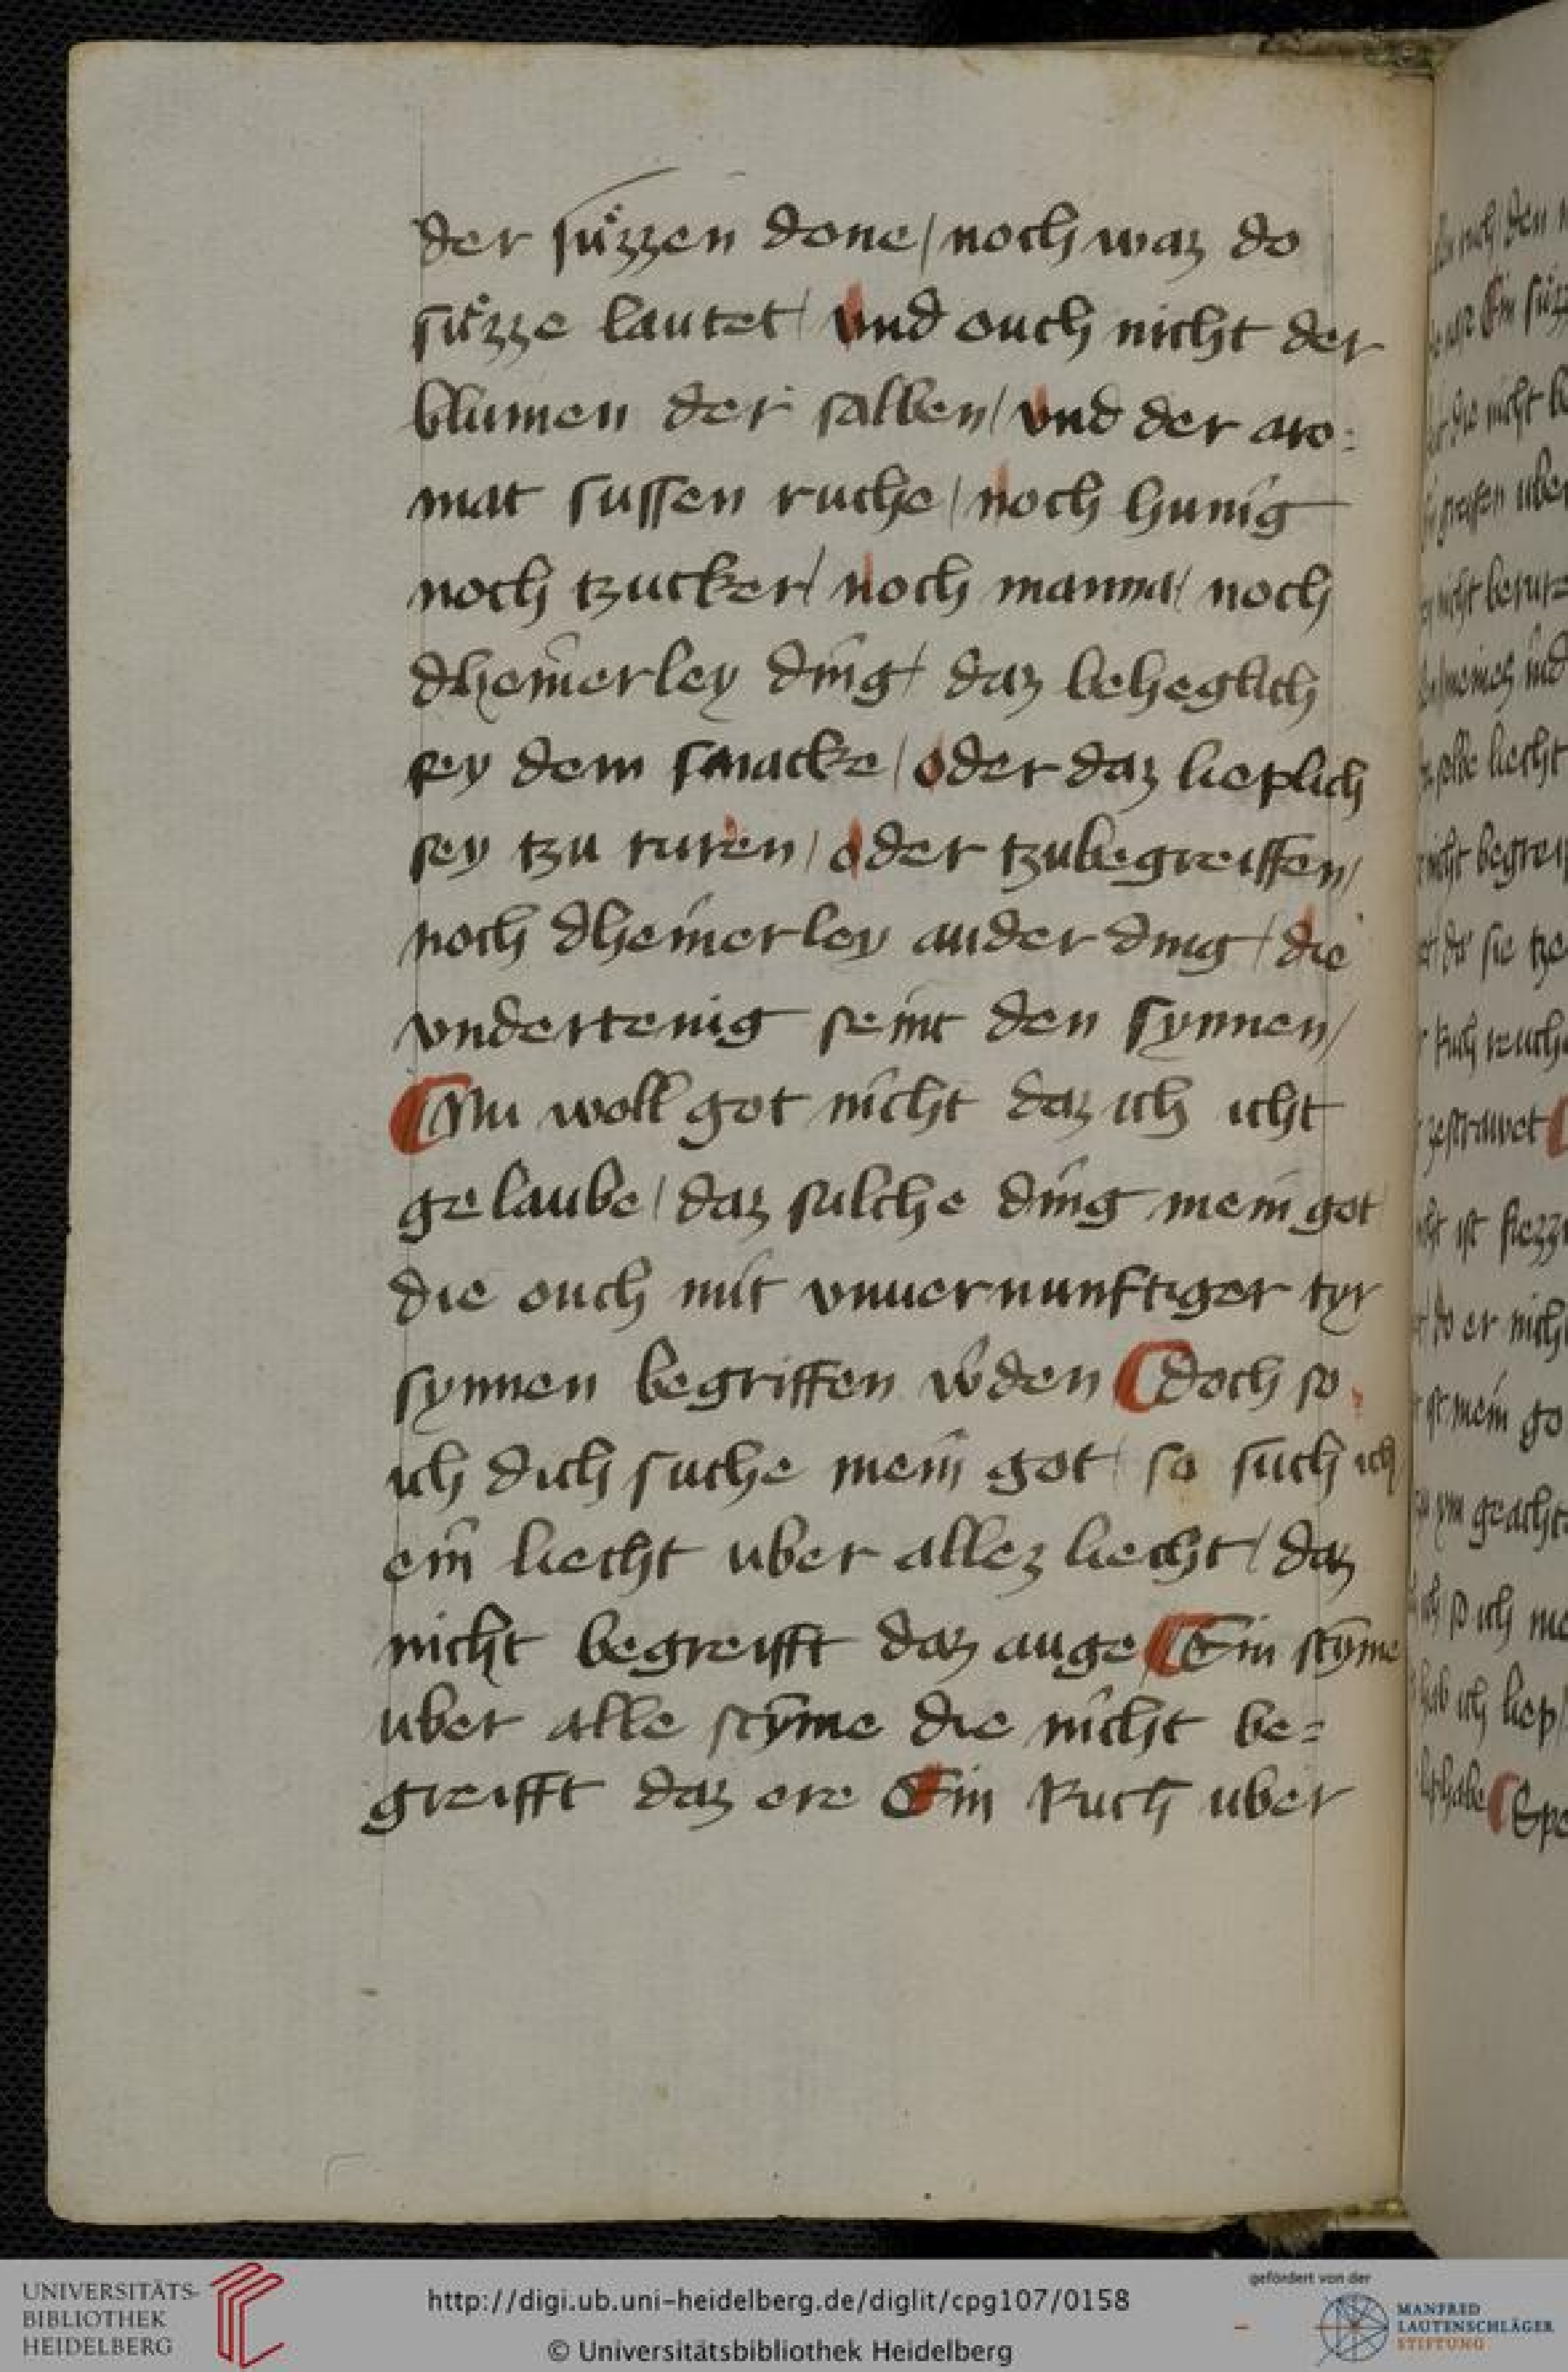 der sůzzen done / noch waz do
sůzze lautet / vnd ouch nicht der
blumen der salben / vnd der aro=
mat sussen ruche / noch hunig
noch tzucker / noch manna / noch
dheinerley ding / daz beheglich
sey dem smacke / oder daz lieplich
sey tzu ruren / oder tzubegreiffen /
noch dheinerley ander ding / die
vndertenig seint den synnen /
Nu woll got nicht daz ich icht
gelaube / daz sulche ding mein got
die ouch mit vnuernunftiger tyr
synnen begriffen w̉den doch so
ich dich suche mein got / so such ich
ein liecht uber allez liecht / daz
nicht begreifft daz auge Ein stȳme
uber alle stȳme die nicht be=
greifft daz ore Ein Ruch uber
UNIVERSITÄTS-
BIBLIOTHEK
HEIDELBERG
http://digi.ub.uni-heidelberg.de/diglit/cpg107/0158
© Universitätsbibliothek Heidelberg
gefördert von der
MANFRED
LAUTENSCHLÄGER
STIFTUNG